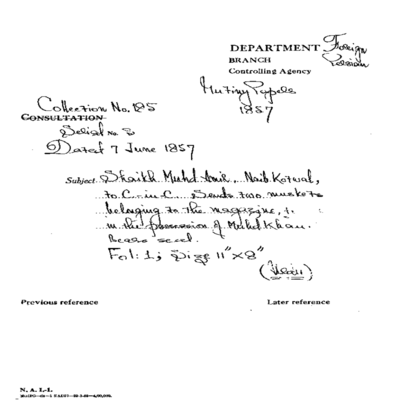 DEPARTMENT Foreign
BRANCH Persian
Controlling Agency
Mutiny Papers
1857
Collection No. 125
CONSULTATION
Serial No. 8
Dated 7 June 1857
Subject Shaikh Muhd Amir.. Naib Kotwal,
to C.-in-C. Sends two muskets
belonging to the magazine, &
in the possession of Khan.
Bears seal.
Fol: 1; Size 11"x8"
Previous reference
Later reference
N. A. I.-1.